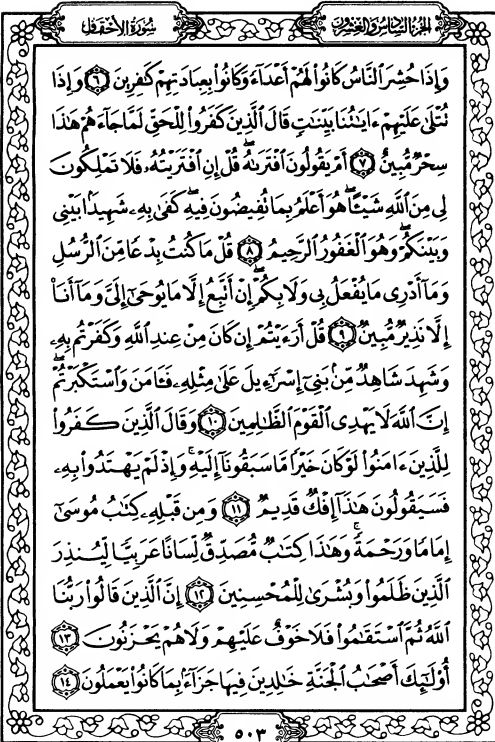 الجزء السادس والعشرون
سورة الأحقاف
وَإِذَا حُشِرَ ٱلنَّاسُ كَانُوا۟ لَهُمْ أَعْدَآءً وَكَانُوا۟ بِعِبَادَتِهِمْ كَٰفِرِينَ ۝٦ وَإِذَا
تُتْلَىٰ عَلَيْهِمْ ءَايَٰتُنَا بَيِّنَٰتٍ قَالَ ٱلَّذِينَ كَفَرُوا۟ لِلْحَقِّ لَمَّا جَآءَهُمْ هَٰذَا
سِحْرٌ مُّبِينٌ ۝٧ أَمْ يَقُولُونَ ٱفْتَرَىٰهُ ۖ قُلْ إِنِ ٱفْتَرَيْتُهُۥ فَلَا تَمْلِكُونَ
لِى مِنَ ٱللَّهِ شَيْـًٔا ۖ هُوَ أَعْلَمُ بِمَا تُفِيضُونَ فِيهِ ۖ كَفَىٰ بِهِۦ شَهِيدًۢا بَيْنِى
وَبَيْنَكُمْ ۖ وَهُوَ ٱلْغَفُورُ ٱلرَّحِيمُ ۝٨ قُلْ مَا كُنتُ بِدْعًا مِّنَ ٱلرُّسُلِ
وَمَآ أَدْرِى مَا يُفْعَلُ بِى وَلَا بِكُمْ ۖ إِنْ أَتَّبِعُ إِلَّا مَا يُوحَىٰٓ إِلَىَّ وَمَآ أَنَا۠
إِلَّا نَذِيرٌ مُّبِينٌ ۝٩ قُلْ أَرَءَيْتُمْ إِن كَانَ مِنْ عِندِ ٱللَّهِ وَكَفَرْتُم بِهِۦ
وَشَهِدَ شَاهِدٌ مِّنۢ بَنِىٓ إِسْرَٰٓءِيلَ عَلَىٰ مِثْلِهِۦ فَـَٔامَنَ وَٱسْتَكْبَرْتُمْ ۖ
إِنَّ ٱللَّهَ لَا يَهْدِى ٱلْقَوْمَ ٱلظَّٰلِمِينَ ۝١٠ وَقَالَ ٱلَّذِينَ كَفَرُوا۟
لِلَّذِينَ ءَامَنُوا۟ لَوْ كَانَ خَيْرًا مَّا سَبَقُونَآ إِلَيْهِ ۚ وَإِذْ لَمْ يَهْتَدُوا۟ بِهِۦ
فَسَيَقُولُونَ هَٰذَآ إِفْكٌ قَدِيمٌ ۝١١ وَمِن قَبْلِهِۦ كِتَٰبُ مُوسَىٰٓ
إِمَامًا وَرَحْمَةً ۚ وَهَٰذَا كِتَٰبٌ مُّصَدِّقٌ لِّسَانًا عَرَبِيًّا لِّيُنذِرَ
ٱلَّذِينَ ظَلَمُوا۟ وَبُشْرَىٰ لِلْمُحْسِنِينَ ۝١٢ إِنَّ ٱلَّذِينَ قَالُوا۟ رَبُّنَا
ٱللَّهُ ثُمَّ ٱسْتَقَٰمُوا۟ فَلَا خَوْفٌ عَلَيْهِمْ وَلَا هُمْ يَحْزَنُونَ ۝١٣
أُو۟لَٰٓئِكَ أَصْحَٰبُ ٱلْجَنَّةِ خَٰلِدِينَ فِيهَا جَزَآءًۢ بِمَا كَانُوا۟ يَعْمَلُونَ ۝١٤
٥٠٣